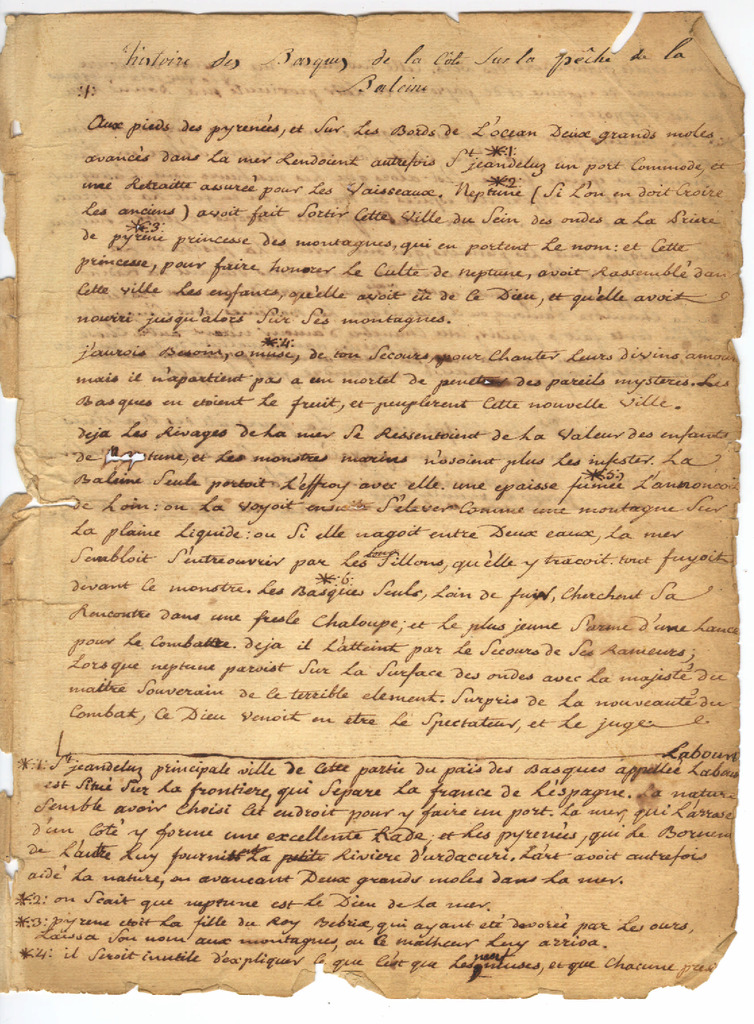 histoire des Basques de la Côte Sur la pêche de la
Baleine
:1:
Aux pieds des pyrenées, et Sur Les Bords de L'ocean Deux grands moles
avancés dans La mer Rendoient autrefois St jeandeluz *:1: un port Commode, et
une Retraitte assurée pour Les Vaisseaux. Neptune *:2: (Si L'on en doit Croire
Les anciens) avoit fait Sortir Cette Ville du Sein des ondes a La Priere
de pyrene *:3: princesse des montagnes, qui en portent Le nom: et Cette
princesse, pour faire honorer Le Culte de neptune, avoit Rassemblé dan
Cette ville Les enfants, qu'elle avoit eu de Ce Dieu, et qu'elle avoit
nourri jusqu'alors Sur Ses montagnes.
j'aurois Besoin, o muse *:4:, de ton Secours, pour Chanter Leurs divins amour
mais il n'apartient pas a un mortel de penetrer des pareils mysteres. Les
Basques en etoient Le fruit, et peuplerent Cette nouvelle Ville.
deja Les Rivages de La mer Se Ressentoient de La Valeur des enfants
de neptune, et Les monstres marins n'osoient plus Les infester. La
Baleine Seule portoit L'effroy avec elle. une epaisse fumée *:5: L'annoncoit
de Loin: on La voyoit S'elever Comme une montagne Sur
La plaine Liquide: ou Si elle nagoit entre Deux eaux, La mer
Sembloit S'entreouvrir par Les longs Sillons, qu'elle y tracoit. tout fuyoit
devant Ce monstre. Les Basques *:6: Seuls, Loin de fuir, Cherchent Sa
Rencontre dans une fresle Chaloupe; et Le plus jeune S'arme d'une Lance
pour Le Combattre. deja il L'atteint par Le Secours de Ses Rameurs;
Lorsque neptune paroist Sur La Surface des ondes avec La majesté du
maitre Souverain de Ce terrible element. Surpris de La nouveauté du
Combat, Ce Dieu venoit en etre Le Spectateur, et Le juge
Labourt
*:1: St jeandeluz principale ville de Cette partie du païs des Basques appellée Labour
est Situé Sur La frontiere, qui Separe La france de L'espagne. La nature
Semble avoir Choisi Cet endroit pour y faire un port. La mer, qui L'arrose
d'un Coté y forme une excellente Rade; et Les pyrenées, qui Le Bornent
de L'autre Luy fournit La petite Riviere d'urdacuri. L'art avoit autrefois
aidé La nature, en avancant Deux grands moles dans La mer.
*:2: on Scait que neptune est Le Dieu de La mer.
*:3: pyrene etoit La fille du Roy Bebrix, qui ayant eté devorée par Les ours,
Laissa Son nom aux montagnes, ou Ce malheur Luy arriva.
*:4: il Seroit inutile d'expliquer Ce que C'est que Les neuf muses, et que Chacune